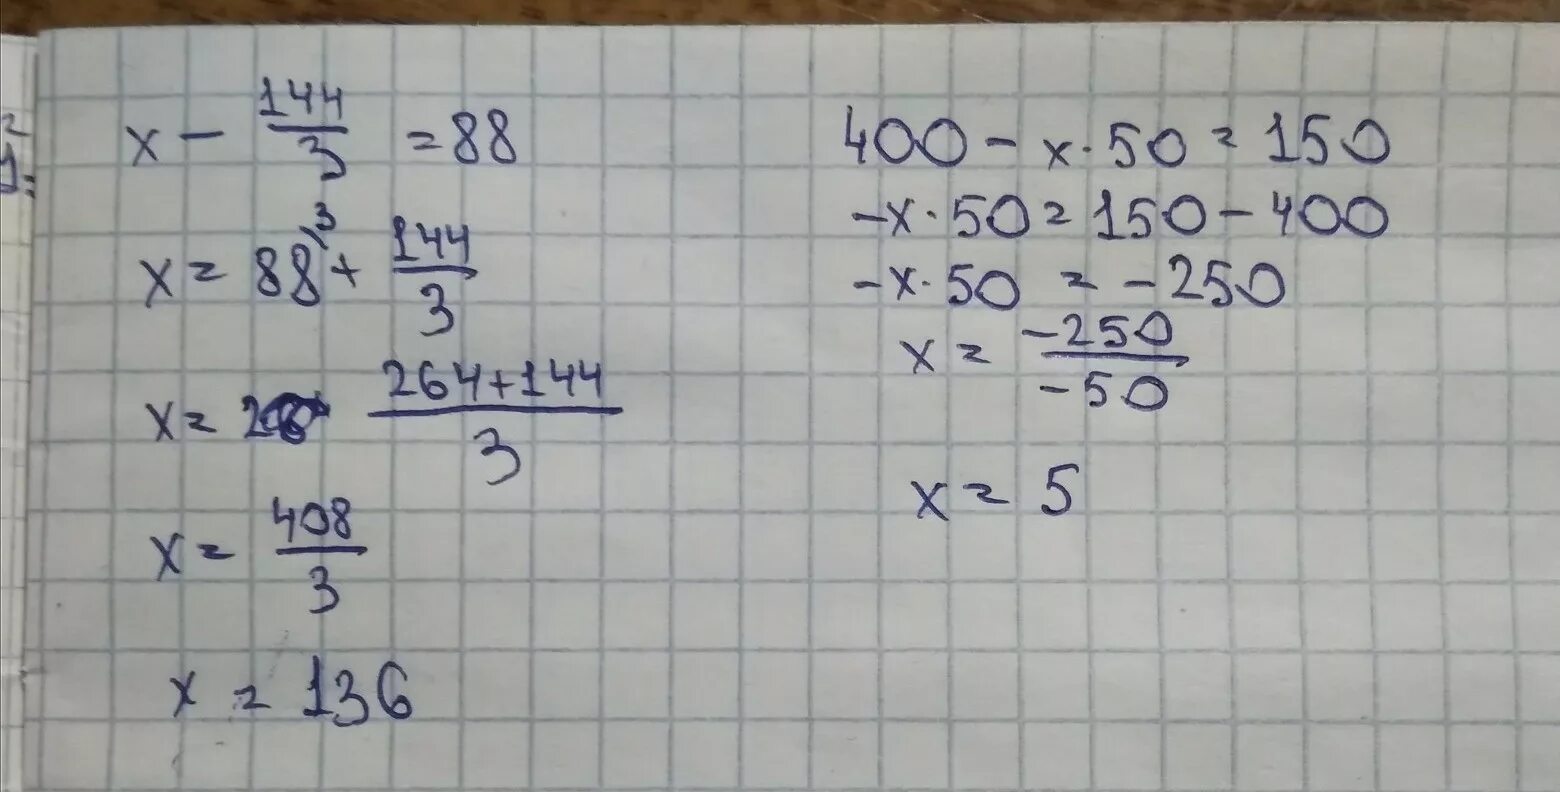 x - 144/3 = 88
x = 88\3 + 144/3
x = (264+144)/3
x = 408/3
x = 136
400 - x · 50 = 150
-x · 50 = 150 - 400
-x · 50 = -250
x = -250/-50
x = 5